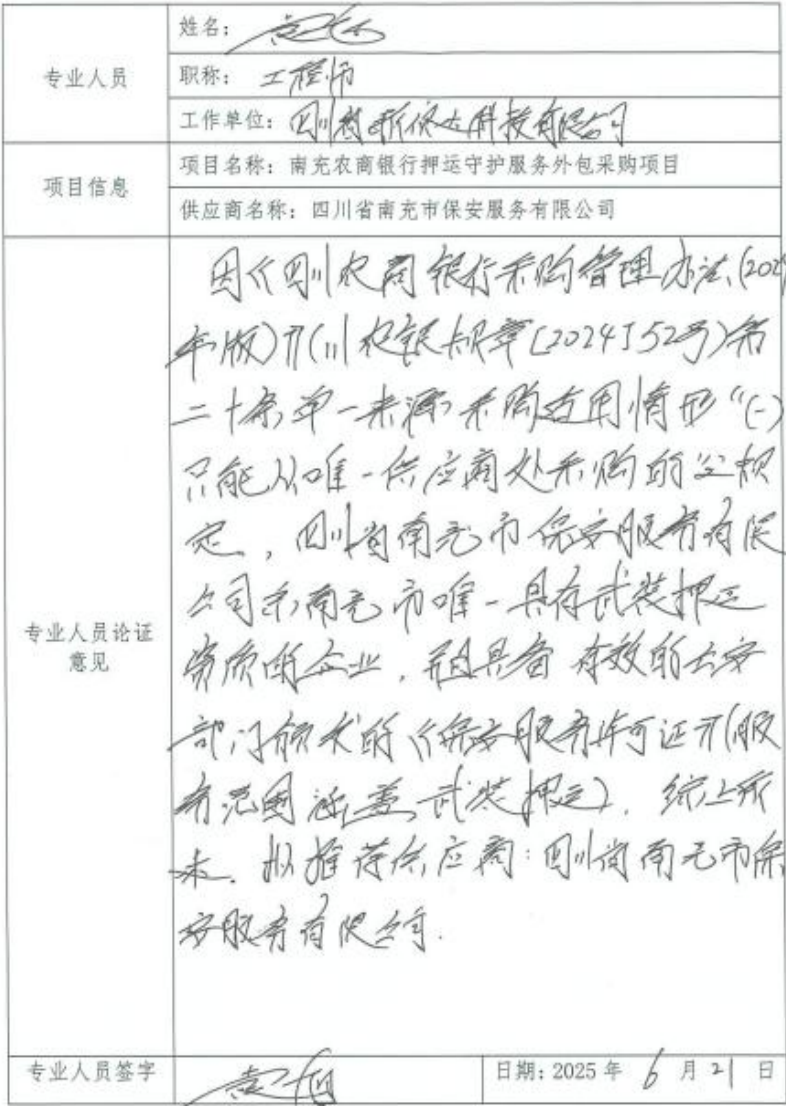 专业人员
姓名：
职称：工程师
工作单位：四川 科技有限公司
项目信息
项目名称：南充农商银行押运守护服务外包采购项目
供应商名称：四川省南充市保安服务有限公司
专业人员论证
意见
因《四川农商银行采购管理办法(202
年版)》(川农银规章〔2024〕52号)第
二十条单一来源采购适用情形“(一)
只能从唯一供应商处采购的”之规
定，四川省南充市保安服务有限
公司系南充市唯一具有武装押运
资质的企业，并且具备有效的公安
部门颁发的《保安服务许可证》(服
务范围涵盖武装押运)．综上所
述．拟推荐供应商：四川省南充市保
安服务有限公司．
专业人员签字
日期：2025年6月21日